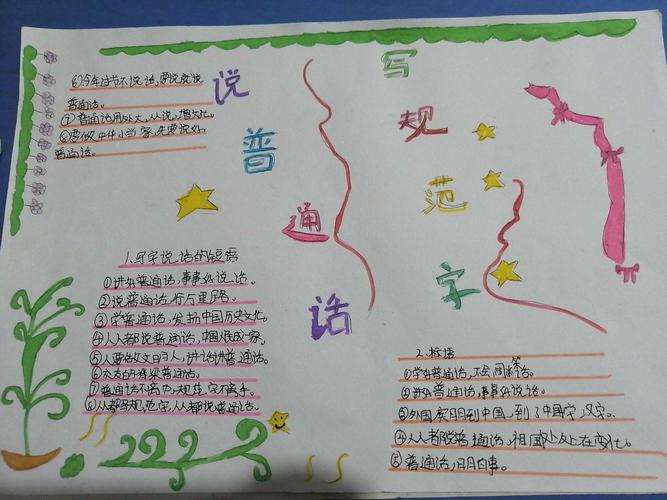 说普通话
写规范字
⑥今年过节不说话,要说就说
普通话。
⑦普通话用处大,从说,增文化。
⑧要做中华小当家,先要说好
普通话。
1.写字说话的短语
①讲好普通话,事事好说话。
②说普通话,行万里路。
③学普通话,发扬中国历史文化。
④人人都说普通话,中国变成一家。
⑤人要做文明人,讲话讲普通话。
⑥交友的桥梁普通话。
⑦普通话不离口,规范字不离手。
⑧人人都写规范字,人人都说普通话。
2.标语
①学好普通话,不会闹笑话。
②讲好普通话,事事好说话。
③外国友朋到中国,到了中国字,汉字。
④人人都说普通话,祖国处处在变化。
⑤普通话,日月白事。